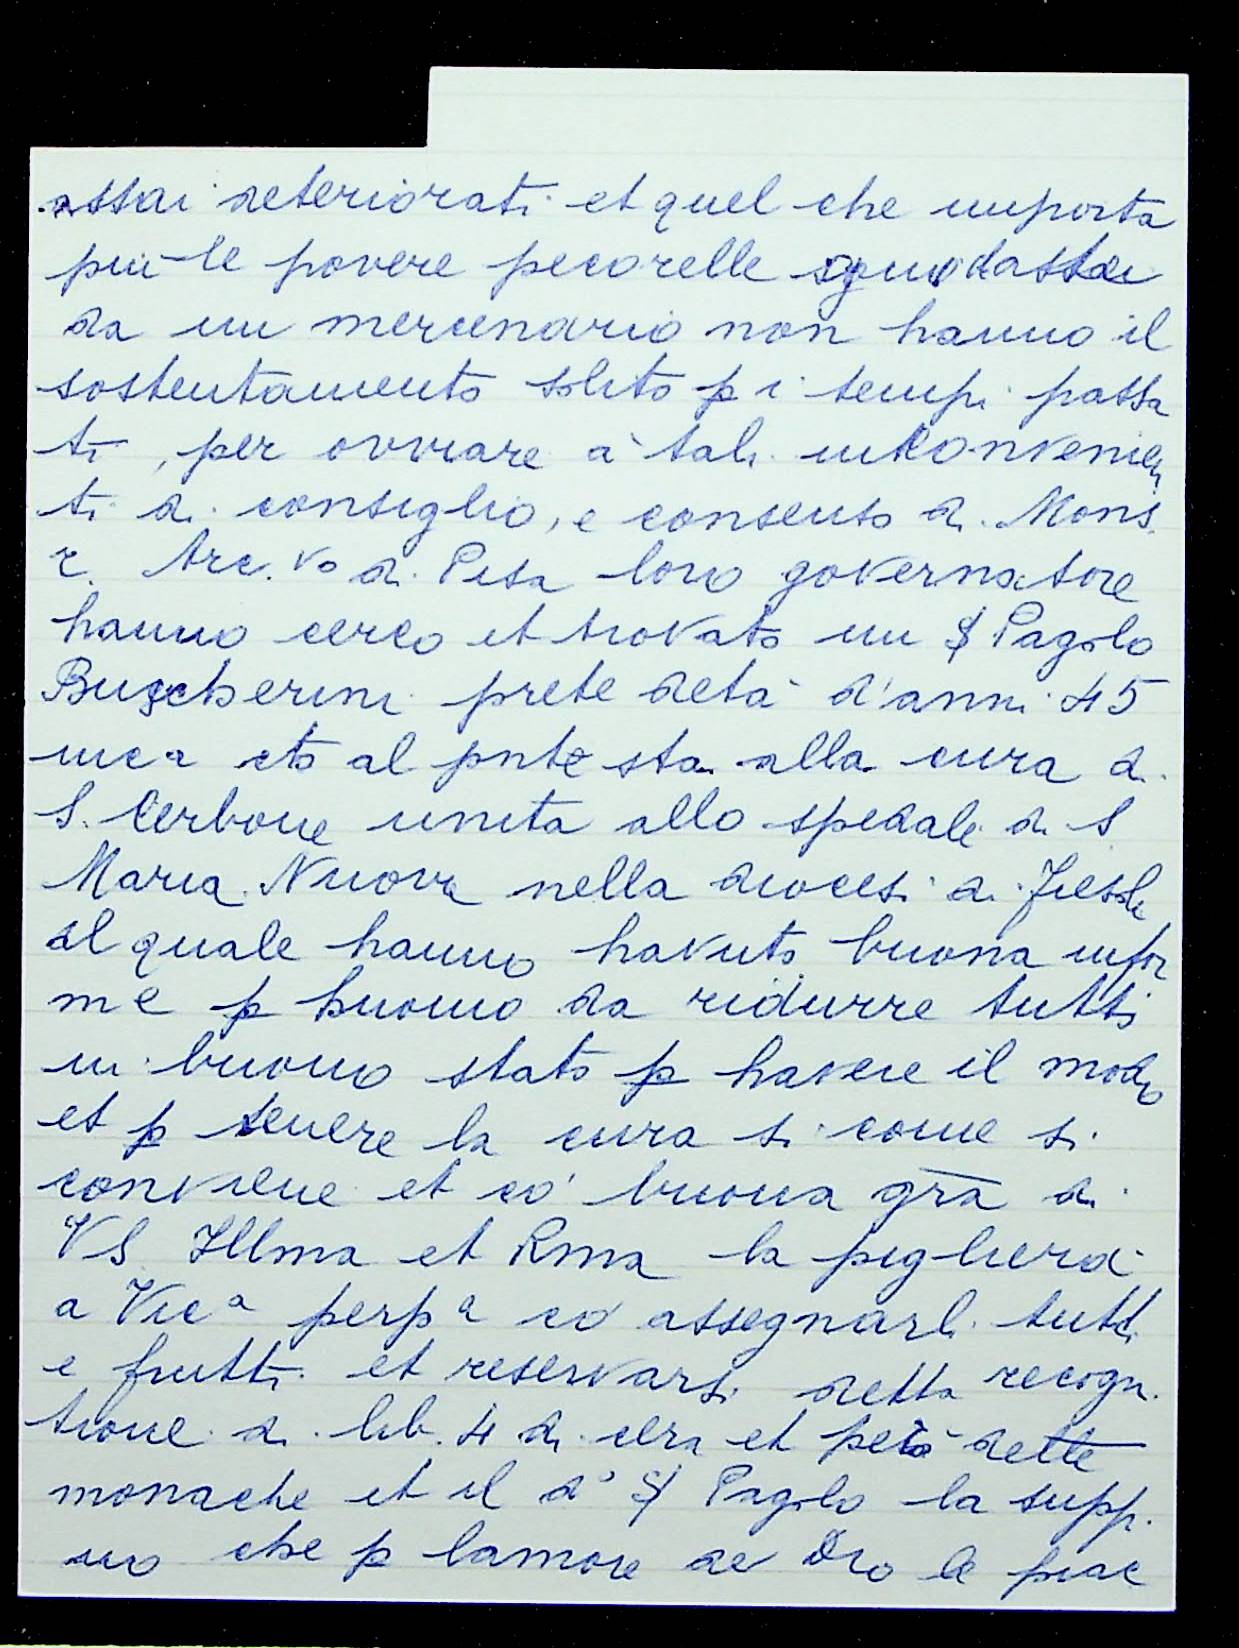 assai deteriorati et quel che importa
piu le povere pecorelle
da un mercenario non hanno il
sostentamento solito p i tempi passa
ti, per ovviare à tali inconvenien
ti di consiglio, e consenso di Mons.
r. Arc.vo di Pisa loro governatore
hanno cerco et trovato un S Pagolo
Buscherini prete detà d'anni 45
inca al pnte sta alla cura di
S. Cerbone unita allo spedale di S
Maria Nuova nella diocesi di Fiesole
al quale hanno havuto buona infor
me p huomo da ridurre tutti
in buono stato p havere il modo
et p tenere la cura si come si
conviene et co' buona gra di
VS Illma et Rma la piglierà
a Vica perpa co' assegnarli tutti
e frutti et reservarsi detta recogn.
tione di lib. 4 di cera et però dette
monache et il do S Pagolo la supp.
no che p lamore de Dio le piac